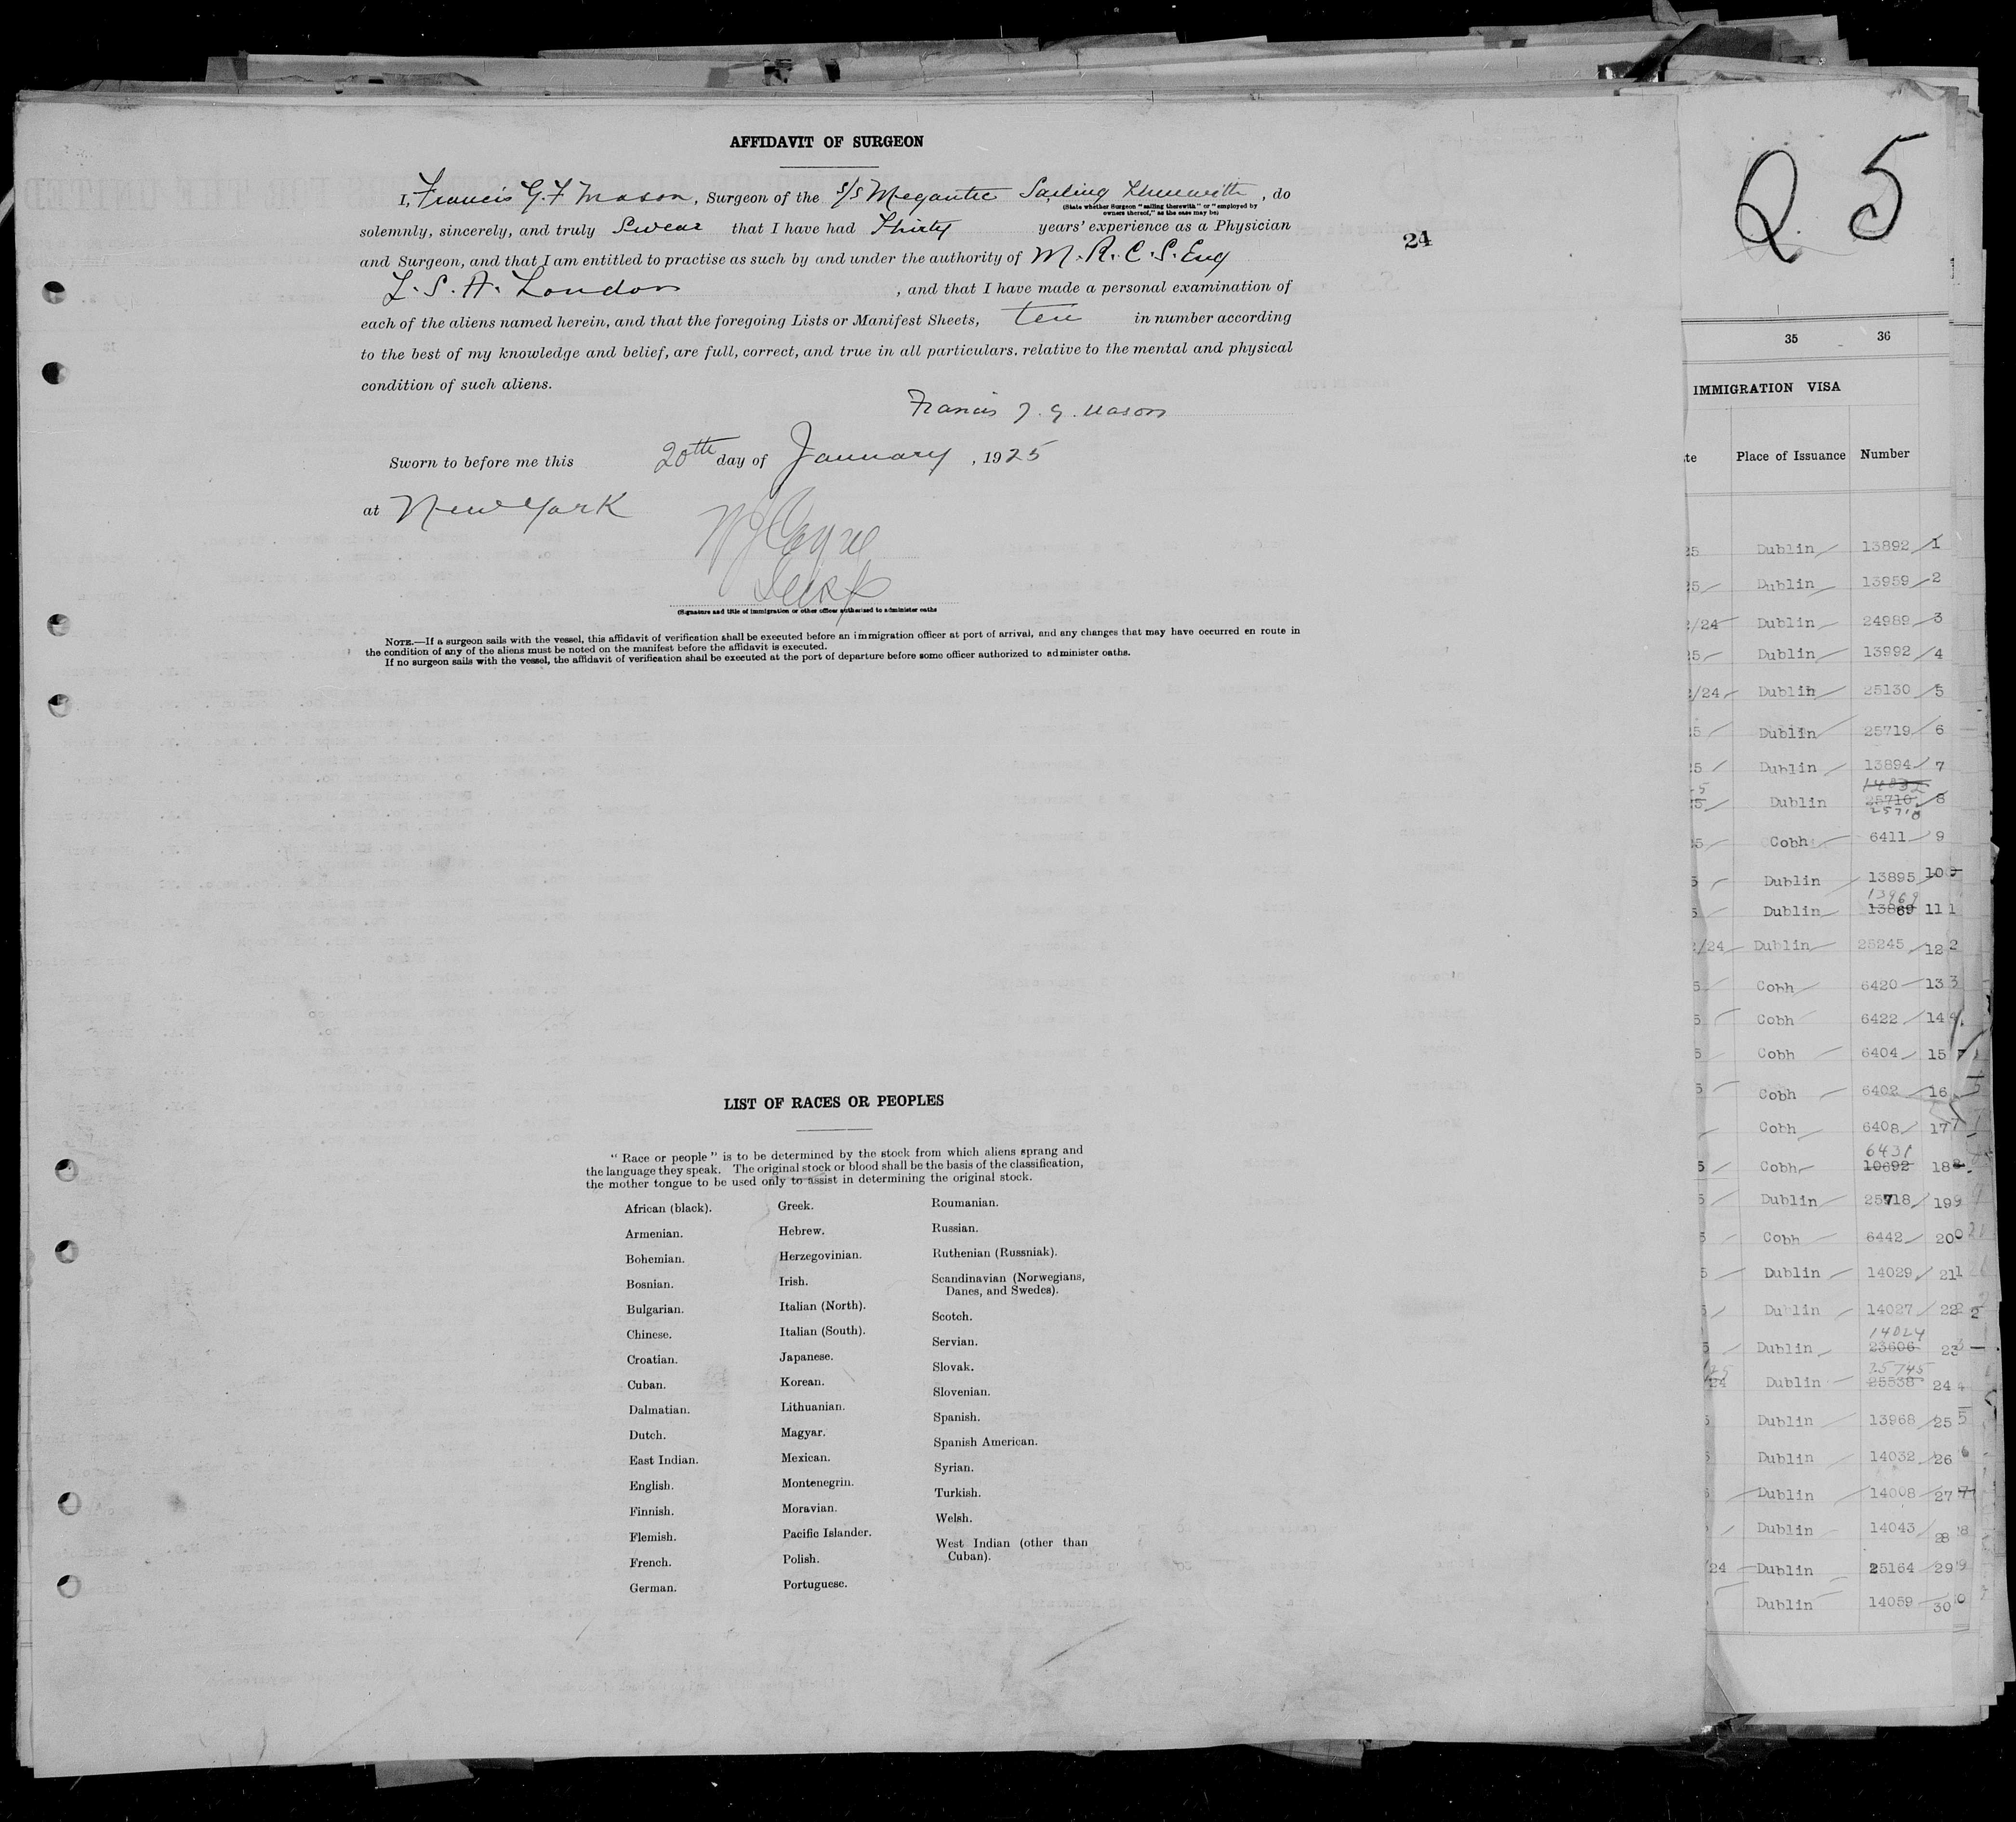 AFFIDAVIT OF SURGEON
I, Francis G. F Mason, Surgeon of the S/S Megantic Sailing Therewith, do
(State whether Surgeon "sailing therewith" or "employed by
owners thereof," as the case may be)
solemnly, sincerely, and truly Swear that I have had Thirty years' experience as a Physician
and Surgeon, and that I am entitled to practise as such by and under the authority of M.R.C.S. Eng
L.S.A. London, and that I have made a personal examination of
each of the aliens named herein, and that the foregoing Lists or Manifest Sheets, ten in number according
to the best of my knowledge and belief, are full, correct, and true in all particulars, relative to the mental and physical
condition of such aliens.
Francis F. G. Mason
Sworn to before me this 20th day of January, 1925
at New York
(Signature and title of immigration or other officer authorised to administer oaths
NOTE.—If a surgeon sails with the vessel, this affidavit of verification shall be executed before an immigration officer at port of arrival, and any changes that may have occurred en route in
the condition of any of the aliens must be noted on the manifest before the affidavit is executed.
If no surgeon sails with the vessel, the affidavit of verification shall be executed at the port of departure before some officer authorized to administer oaths.
24
LIST OF RACES OR PEOPLES
"Race or people" is to be determined by the stock from which aliens sprang and
the language they speak. The original stock or blood shall be the basis of the classification,
the mother tongue to be used only to assist in determining the original stock.
African (black).
Armenian.
Bohemian.
Bosnian.
Bulgarian.
Chinese.
Croatian.
Cuban.
Dalmatian.
Dutch.
East Indian.
English.
Finnish.
Flemish.
French.
German.
Greek.
Hebrew.
Herzegovinian.
Irish.
Italian (North).
Italian (South).
Japanese.
Korean.
Lithuanian.
Magyar.
Mexican.
Montenegrin.
Moravian.
Pacific Islander.
Polish.
Portuguese.
Roumanian.
Russian.
Ruthenian (Russniak).
Scandinavian (Norwegians,
Danes, and Swedes).
Scotch.
Servian.
Slovak.
Slovenian.
Spanish.
Spanish American.
Syrian.
Turkish.
Welsh.
West Indian (other than
Cuban).
25
35 36
IMMIGRATION VISA
te Place of Issuance Number
25 Dublin 13892 1
25 Dublin 13959 2
2/24 Dublin 24989 3
25 Dublin 13992 4
2/24 Dublin 25130 5
5 Dublin 25719 6
25 Dublin 13894 7
25 Dublin 25710 8
25 Cobh 6411 9
5 Dublin 13895 10
13969
5 Dublin 13869 11
2/24 Dublin 25245 12
5 Cobh 6420 13
5 Cobh 6422 14
5 Cobh 6404 15
5 Cobh 6402 16
Cobh 6408 17
6431
5 Cobh 10692 18
5 Dublin 25718 19
5 Cobh 6442 20
5 Dublin 14029 21
5 Dublin 14027 22
14024
5 Dublin 23606 23
25745
24 Dublin 25538 24
5 Dublin 13968 25
5 Dublin 14032 26
5 Dublin 14008 27
Dublin 14043 28
/24 Dublin 25164 29
Dublin 14059 30